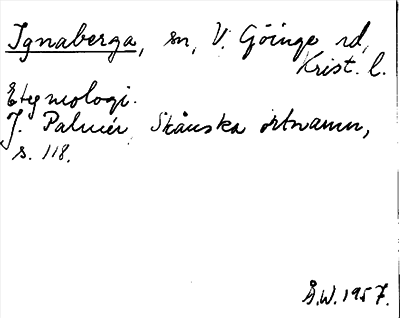 Ignaberga, sn, V. Göinge rd,
Krist. l.
Etymologi.
J. Palmér Skånska ortnamn,
s. 118.
Å.W. 1957.